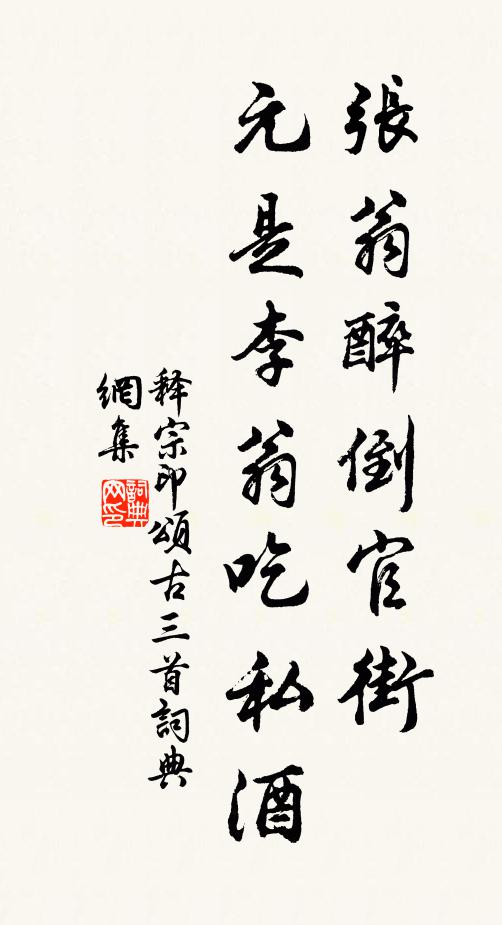 張翁醉倒官街
元是李翁吃私酒
释宗印頌古三首詞典
網集
詞典
网印